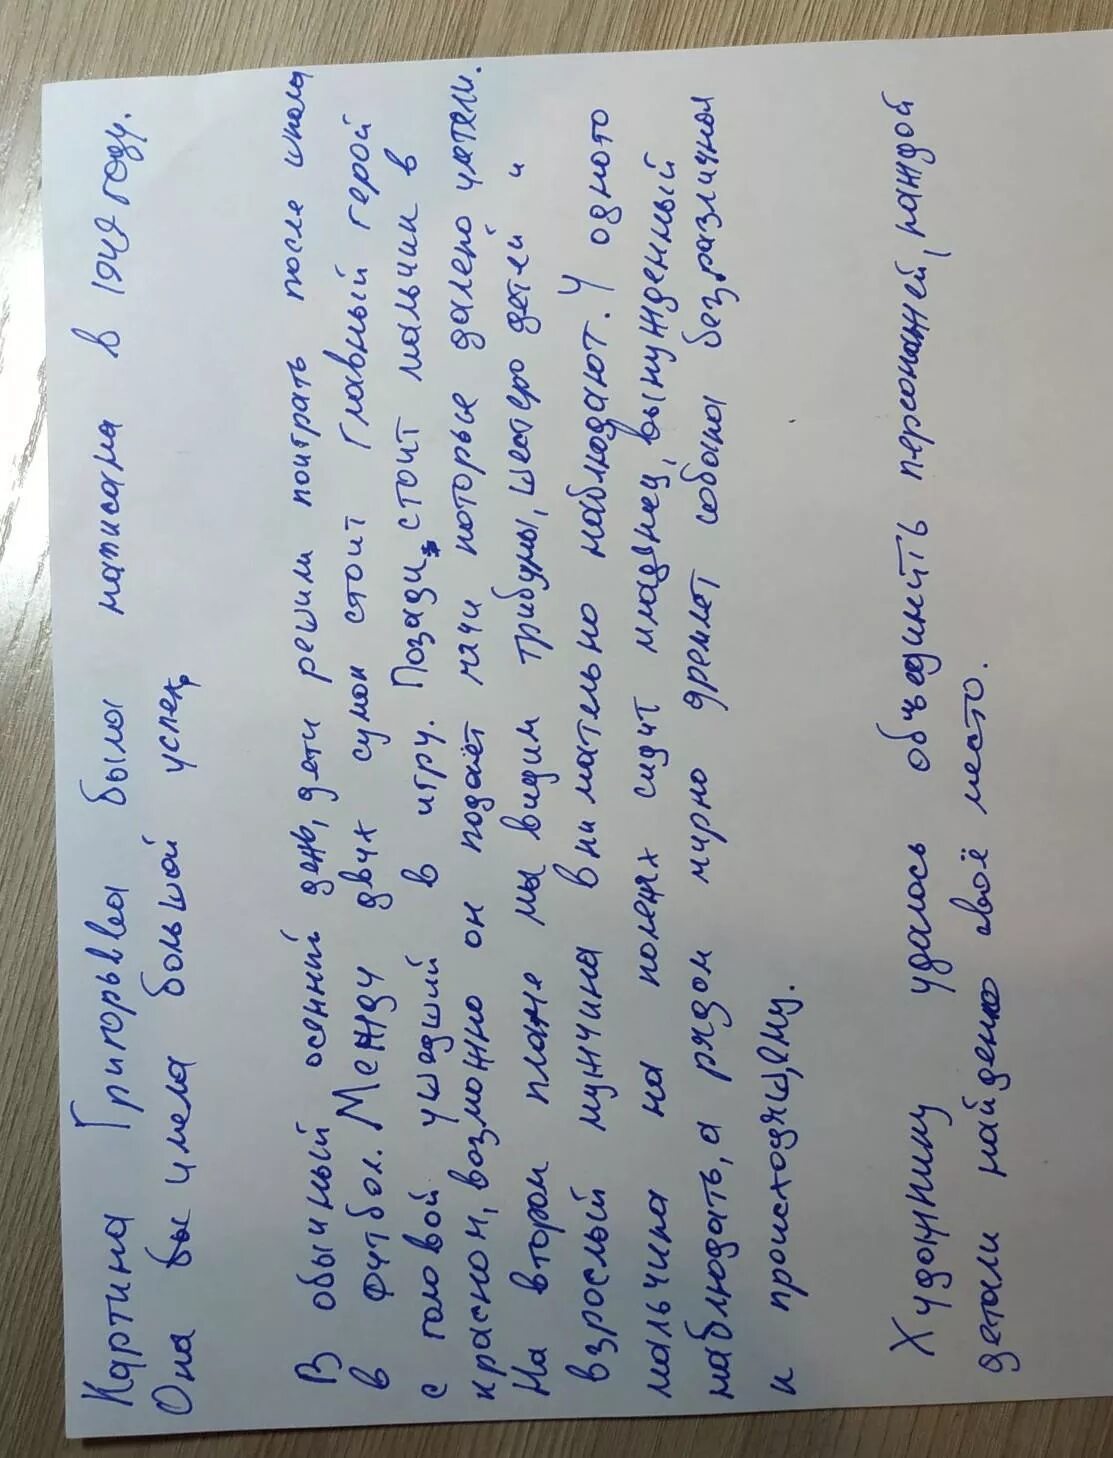 Картина Григорьева была написана в 1949 году.
Она бы имела большой успех,
В обычный осенний день, дети решили поиграть после школы
в футбол. Между двух сумок стоит главный герой
с головой ушедший в игру. Позади, стоит мальчик в
красном, возможно он подаёт мячи которые далеко улетели.
На втором плане мы видим трибуны, шестеро детей и
взрослый мужчина внимательно наблюдают. У одного
мальчика на коленях сидит младенец, вынужденный
наблюдать, а рядом мирно дремлет собака безразличная
к происходящему.
Художнику удалось объединить персонажей, каждой
детали найдено своё место.